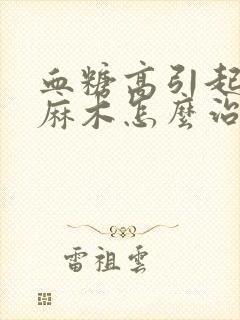 血糖高引起
麻木怎麼治
雷祖雲